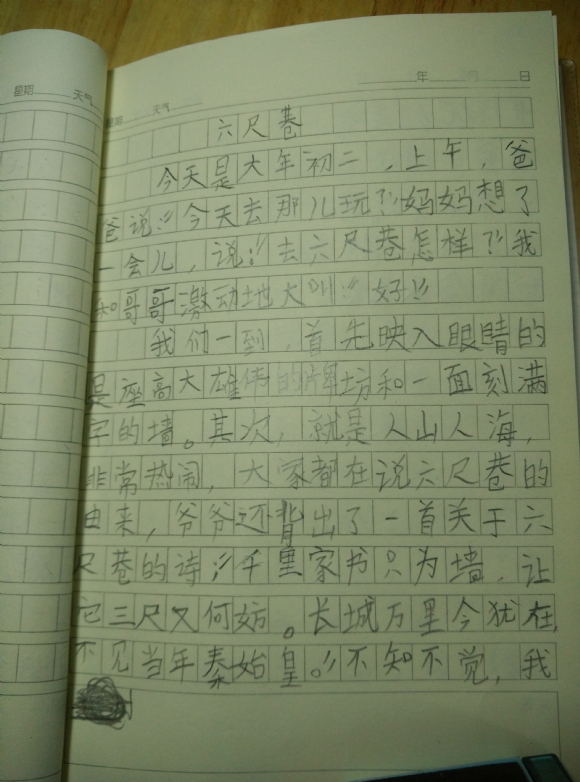 星期 天气
星期 天气 年 月 日
六尺巷
今天是大年初二，上午，爸
爸说：“今天去那儿玩？”妈妈想了
一会儿，说：“去六尺巷怎样？”我
和哥哥激动地大叫：“好！”
我们一到，首先映入眼睛的
是座高大雄伟的牌坊和一面刻满
字的墙。其次，就是人山人海，
非常热闹，大家都在说六尺巷的
由来，爷爷还背出了一首关于六
尺巷的诗：“千里家书只为墙，让
它三尺又何妨。长城万里今犹在，
不见当年秦始皇。”不知不觉，我